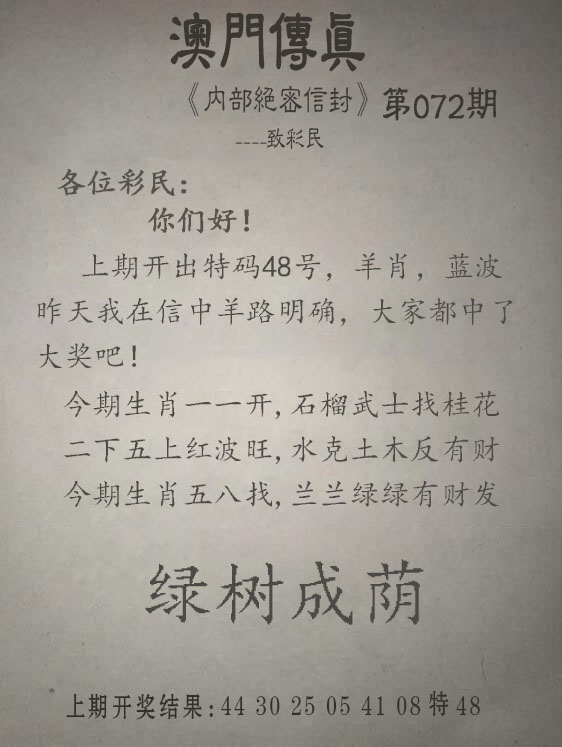 澳門傳眞
《内部絕密信封》第072期
----致彩民
各位彩民：
你们好！
上期开出特码48号，羊肖，蓝波
昨天我在信中羊路明确，大家都中了
大奖吧！
今期生肖一一开,石榴武士找桂花
二下五上红波旺,水克土木反有财
今期生肖五八找,兰兰绿绿有财发
绿树成荫
上期开奖结果:44 30 25 05 41 08 特 48